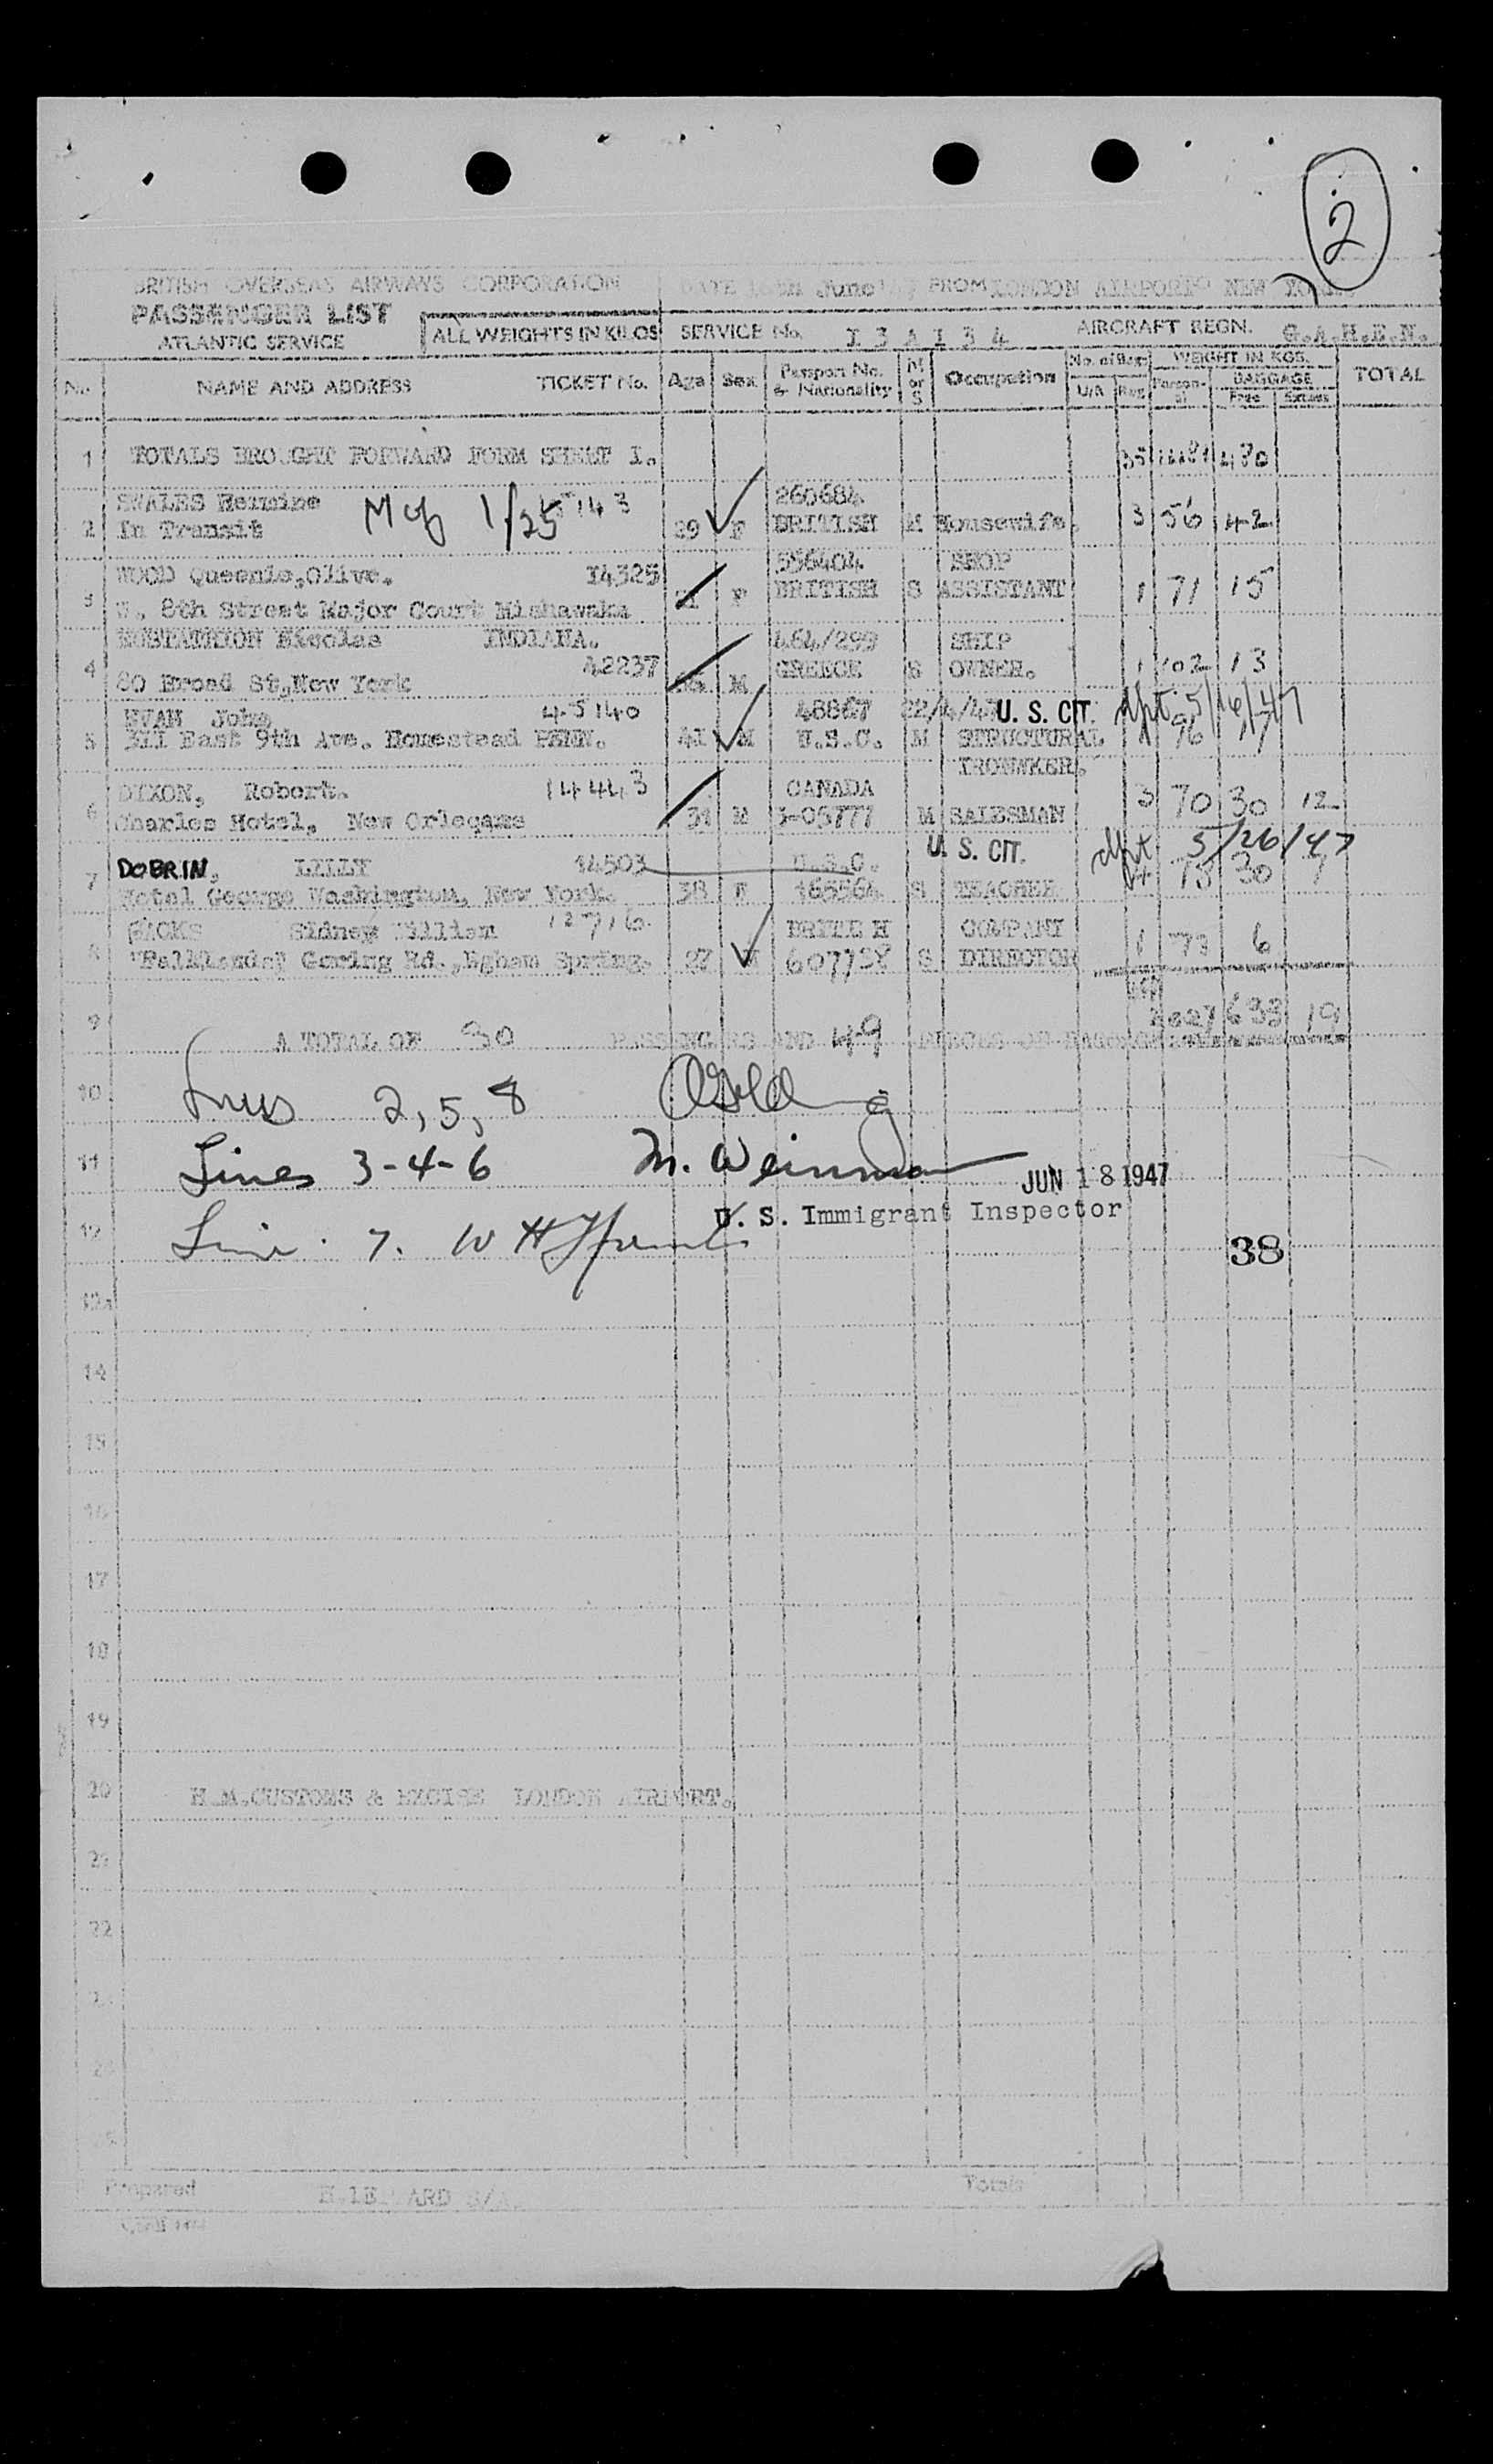 2
BRITISH OVERSEAS AIRWAYS CORPORATION
DATE June FROM LONDON AIRPORT TO NEW YORK
PASSENGER LIST
ATLANTIC SERVICE
ALL WEIGHTS IN KILOS
SERVICE No. I 3 A I 3 4
AIRCRAFT REGN. G.A.H.E.N.
No. NAME AND ADDRESS TICKET No. Age Sex Passport No. & Nationality M or S Occupation No. of Bags U/A Reg WEIGHT IN KGS. Personal BAGGAGE Free Excess TOTAL
1 TOTALS BROUGHT FORWARD FORM SHEET I. 35 480
SWALES Hermine 1/25 45143 260684
2 In Transit 29 F BRITISH M Housewife. 3 56 42
WOOD Queenie, Olive. I4325 556404 SHOP
3 W. 8th Street Major Court Mishawaka 21 F BRITISH S ASSISTANT 1 71 15
EUSTATHION Nicolas INDIANA. 464/299 SHIP
4 80 Broad St, New York 42237 M GREECE S OWNER. 1 102 13
EVAN John 45140 48867 22/4/47 U. S. CIT. dpt. 5/16/47
5 3II East 9th Ave. Homestead PENN. 4I M U.S.C. M STRUCTURAL 1 96 17
IRONWKER.
DIXON, Robert. 14443 CANADA
6 Charles Hotel, New Orleans 31 M 3-05777 M SALESMAN 3 70 30 12
U. S. CIT. dpt 5/26/47
DOBRIN, LILLY 14503 U.S.C.
7 Hotel George Washington, New York. 38 F 165564 S TEACHER 4 78 30 7
SACKS Sidney William 12716 BRITISH COMPANY
8 "Falklands" Goring Rd., Egham Spring. 27 M 607758 S DIRECTOR 1 73 6
9 A TOTAL OF 30 PASSENGERS AND 49 PIECES OF BAGGAGE 2027 633 19
10 Lines 2, 5, 8
11 Lines 3-4-6 M. Weinman JUN 18 1947
U. S. Immigrant Inspector
12 Line 7. W H
38
13
14
15
16
17
18
19
20 H.M. CUSTOMS & EXCISE LONDON AIRPORT.
21
22
Prepared Totals